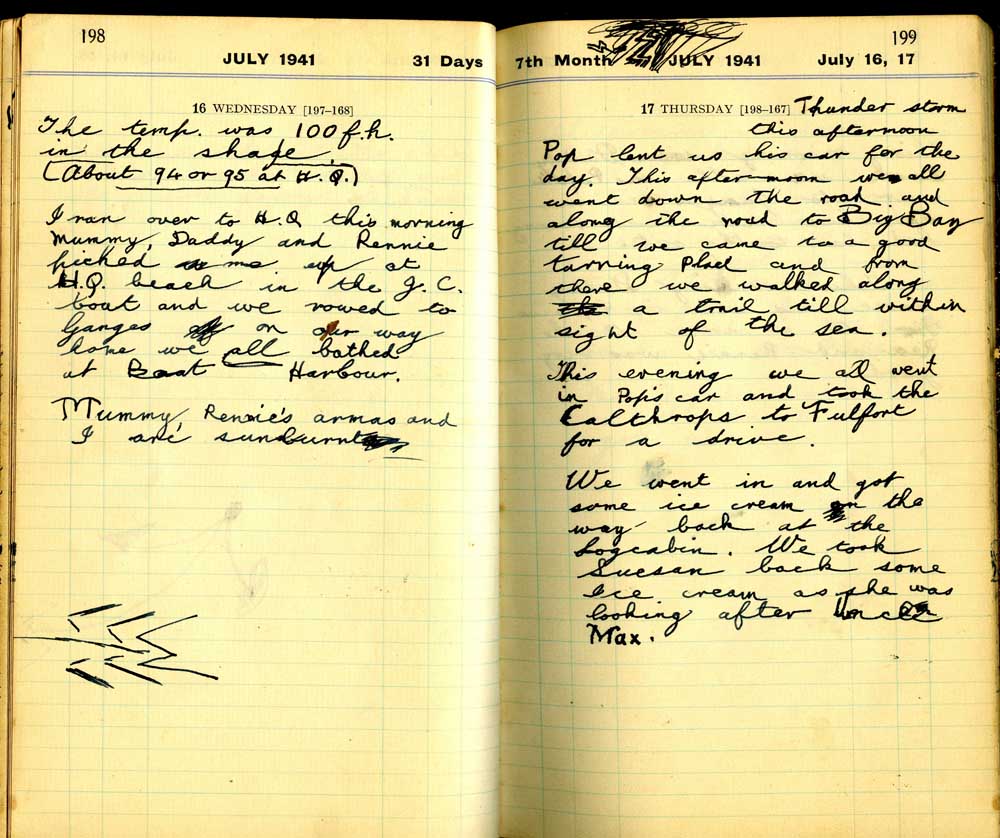 198
JULY 1941 31 Days
16 WEDNESDAY [197–168]
The temp. was 100 f.h.
in the shade.
(About 94 or 95 at H.Q.)
I ran over to H.Q this morning
Mummy, Daddy and Rennie
picked me up at
H.Q. beach in the J.C.
boat and we rowed to
Ganges on our way
home we all bathed
at Boat Harbour.
Mummy, Rennie's armas and
I are sunburnt
199
7th Month JULY 1941 July 16, 17
17 THURSDAY [198–167] Thunder storm
this afternoon
Pop lent us his car for the
day. This after-noon we all
went down the road and
along the road to Big Bay
till we came to a good
turning Place and from
there we walked along
a trail till within
sight of the sea.
This evening we all went
in Pop's car and took the
Calthrops to Fulfort
for a drive.
We went in and got
some ice cream on the
way back at the
Logcabin. We took
Suesan back some
Ice cream as she was
looking after Uncle
Max.